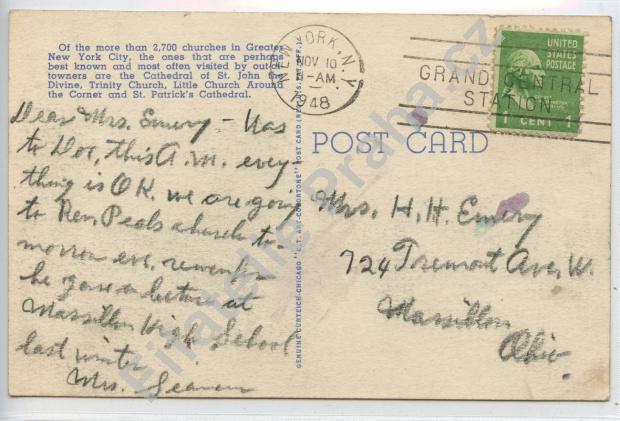 Of the more than 2,700 churches in Greater
New York City, the ones that are perhaps
best known and most often visited by out-of-
towners are the Cathedral of St. John the
Divine, Trinity Church, Little Church Around
the Corner and St. Patrick's Cathedral.
NEW YORK, N.Y.
NOV 10
-AM
1948
GRAND CENTRAL
STATION
UNITED
STATES
POSTAGE
1 CENT 1
POST CARD
Dear Mrs. Emery - Was
to Doc, this A.M. every-
thing is OK. we are going
to Rev. Peals church to-
morrow eve. remember
he gave a lecture at
Massillon High School
last winter
Mrs.
Mrs. H. H. Emery
724 Tremont Ave, W.
Massillon
Ohio.
GENUINE CURTEICH-CHICAGO "C.T. ART-COLORTONE" POST CARD (REG. U.S. PAT. OFF.)
Filatelie Praha.cz